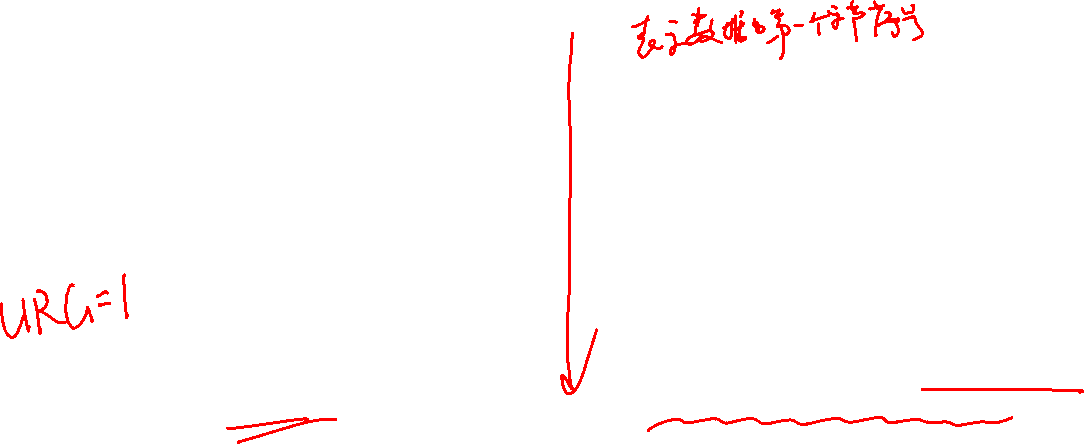 表示数据的第一个字节序号
URG=1